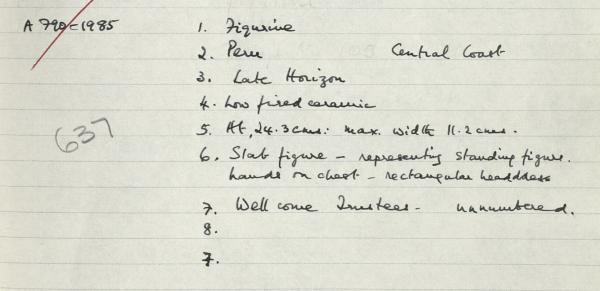 A 790=1985
1. Figurine
2. Peru Central Coast
3. Late Horizon
4. Low fired ceramic
5. Ht, 24.3 cms: max. width 11.2 cms.
6. Slab figure – representing standing figure.
hands on chest – rectangular headdress
7. Wellcome Trustees – unnumbered.
8.
7.
637